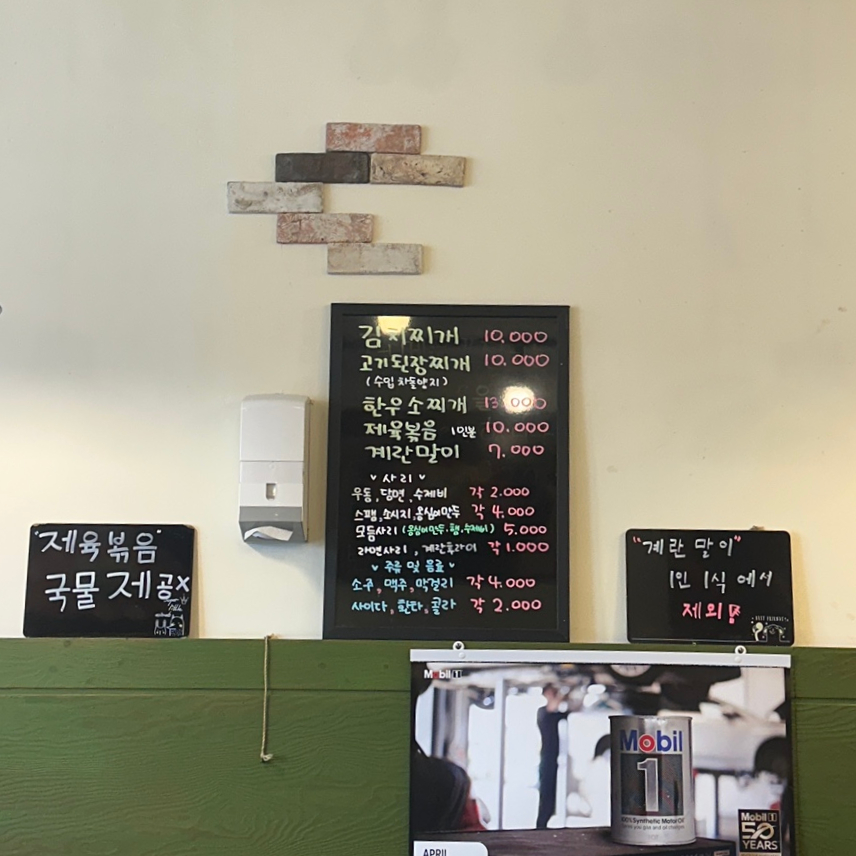 김치찌개 10.000
고기된장찌개 10.000
(수입 차돌양지)
한우소찌개 13.000
제육볶음 1인분 10.000
계란말이 7.000
사리
우동, 당면, 수제비 각 2.000
스팸, 소시지, 옹심이만두 각 4.000
모듬사리 (옹심이만두.햄.수제비) 5.000
라면사리, 계란후라이 각 1.000
주류 및 음료
소주, 맥주, 막걸리 각 4.000
사이다, 환타, 콜라 각 2.000
"제육볶음"
국물 제공x
"계란말이"
1인 1식에서
제외
BEST FRIENDS
Mobil 1
Mobil
1
100% Synthetic Motor Oil
Mobil 1
50
YEARS
APRIL